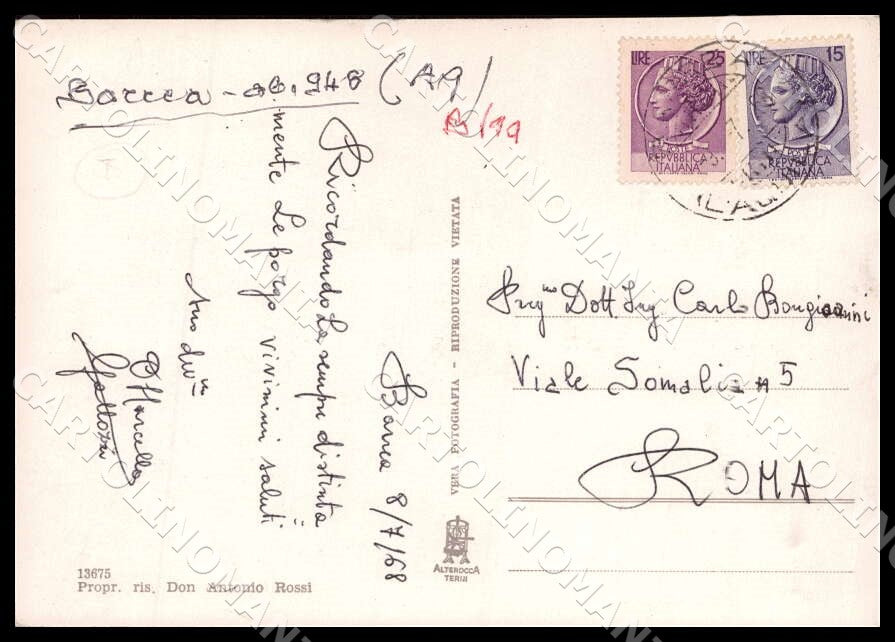 Barrea - (AQ)
Ricordando La sempre distinta=
mente Le porgo vivissimi saluti
Suo dev.mo
D Marcello
Barrea 8/7/68
VERA FOTOGRAFIA - RIPRODUZIONE VIETATA
ALTEROCCA
TERNI
13675
Propr. ris. Don Antonio Rossi
LIRE 25
POSTE
REPVBBLICA
ITALIANA
LIRE 15
POSTE
REPVBBLICA
ITALIANA
Preg.mo Dott. Ing Carlo Bongioannini
Viale Somalia n 5
ROMA
CARTOLINOMANIA